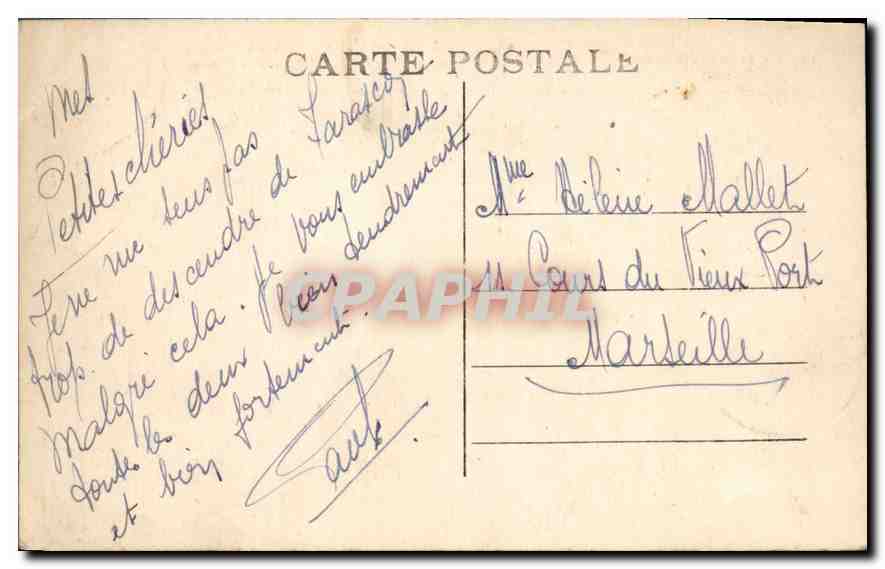 CARTE POSTALE
Mes
Petites chéries
Je ne me sens pas
trop de descendre de Tarascon
Malgré cela. Je vous embrasse
toutes les deux bien tendrement
et bien fortement.
Mme Hélène Mallet
11 Cours du Vieux Port
Marseille
CPAPHIL